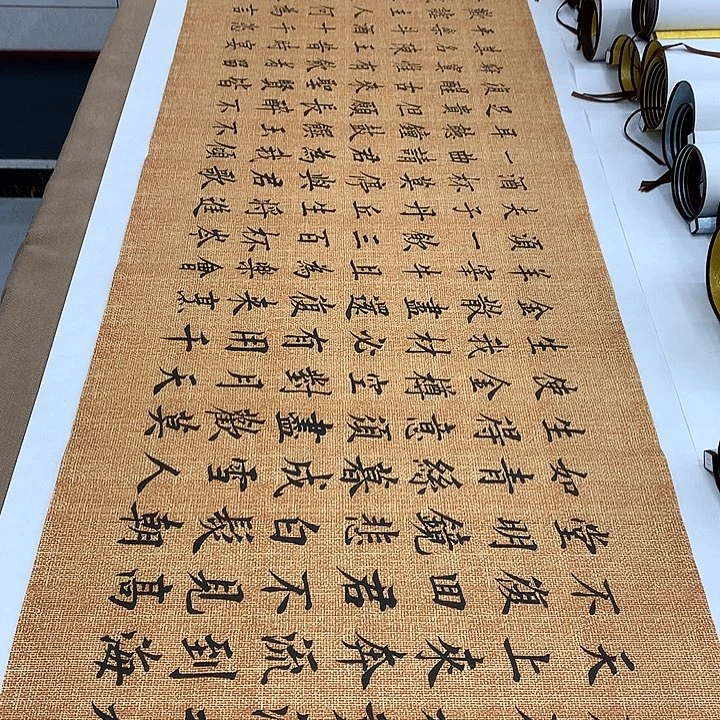 天上來奔流到海
不復回君不見高
堂明鏡悲白髮朝
如青絲暮成雪人
生得意須盡歡莫
使金樽空對月天
生我材必有用千
金散盡還復來烹
羊宰牛且為樂會
須一飲三百杯岑
夫子丹丘生將進
酒杯莫停與君歌
一曲請君為我傾
耳聽鐘鼓饌玉不
足貴但願長醉不
復醒古來聖賢皆
寂寞惟有飲者留
其名陳王昔時宴
平樂斗酒十千恣
歡謔主人何為言